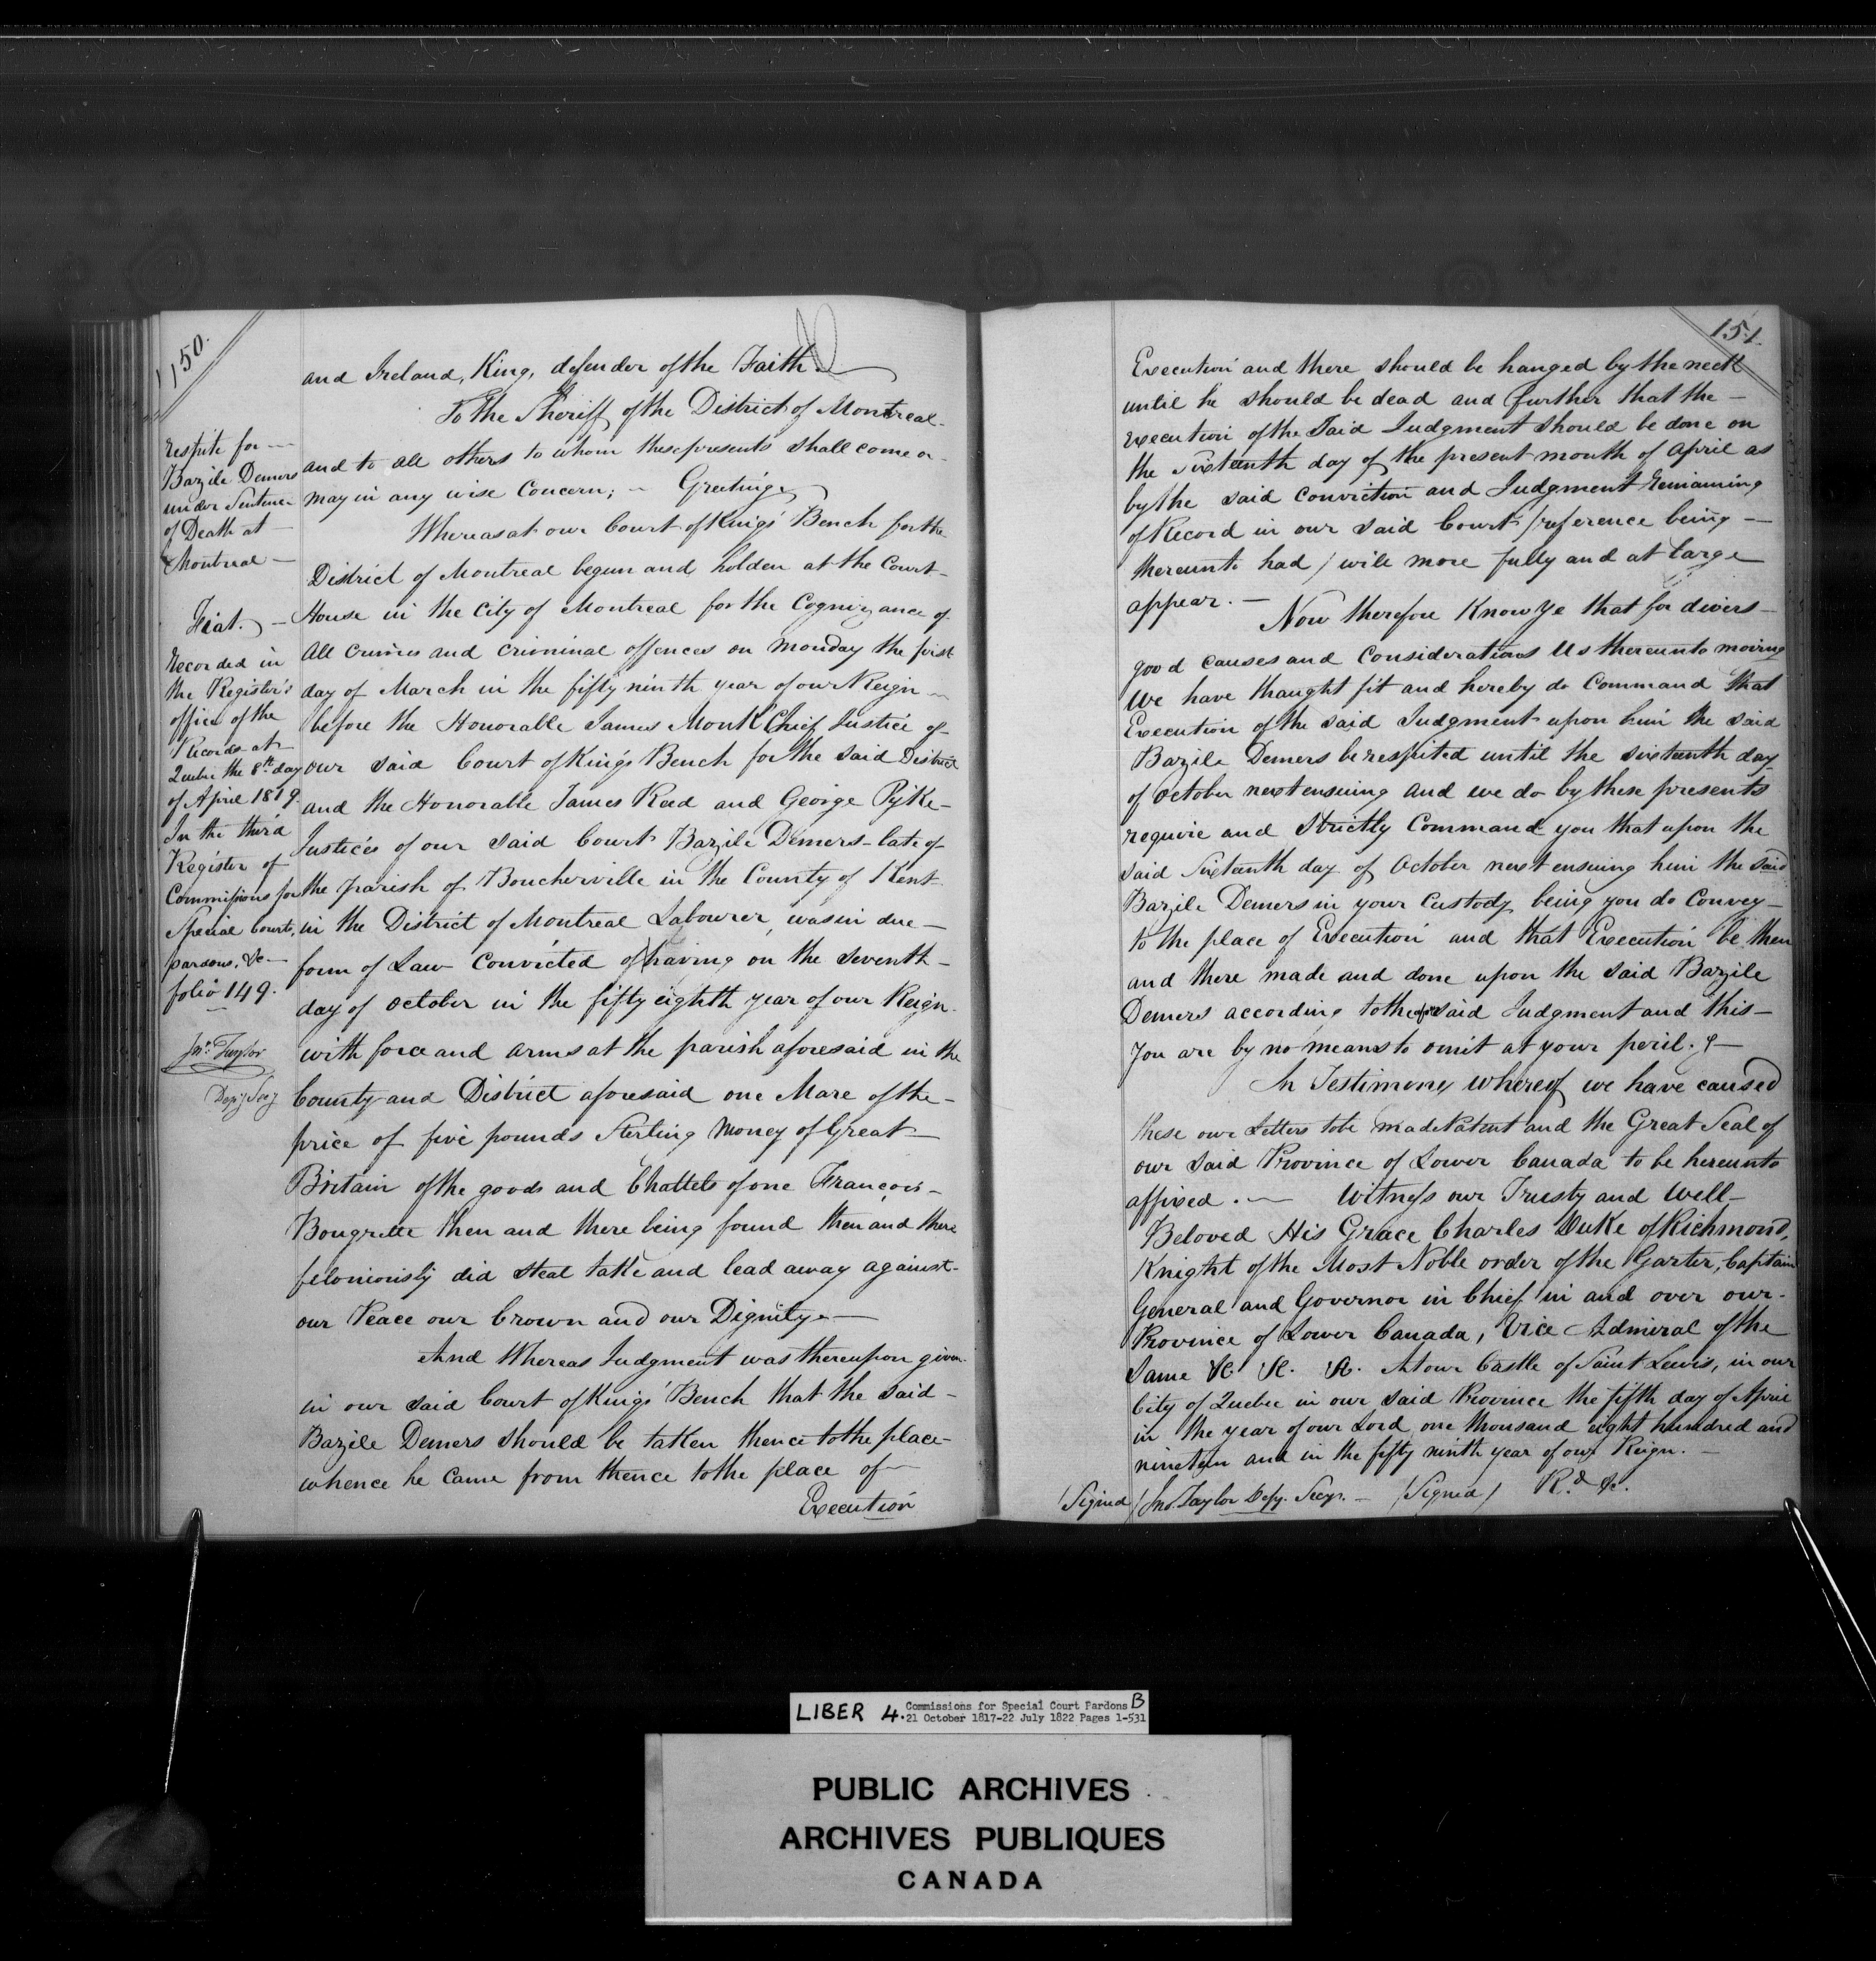 150.
respite for —
Bazile Demers
under Sentence
of Death at —
Montreal —
Fiat. —
Recorded in
the Register's
office of the
Records at
Quebec the 8th day
of April 1819.
In the third
Register of
Commissions for
Special Courts,
pardons, &c —
folio 149.
Jno. Taylor
Depy Secy
and Ireland, King, defender of the Faith. —
To the Sheriff of the District of Montreal -
and to all others to whom these presents shall come or -
may in any wise Concern; — Greeting,
Whereas at our Court of Kings' Bench for the
District of Montreal begun and holden at the Court -
House in the City of Montreal for the Cognizance of
all crimes and criminal offences on Monday the first
day of March in the fifty ninth year of our Reign —
before the Honorable James Monk Chief Justice of
our said Court of King's Bench for the said District
and the Honorable James Reed and George Pyke -
Justices of our said Court Bazile Demers - late of
the parish of Boucherville in the County of Kent
in the District of Montreal Labourer, was in due —
form of Law Convicted of having on the seventh -
day of October in the fifty eighth year of our Reign.
with force and arms at the parish aforesaid in the
County and District aforesaid one Mare of the -
price of five pounds Sterling Money of Great —
Britain of the goods and Chattels of one François -
Bougrette then and there being found then and there
feloniously did steal take and lead away against -
our Peace our Crown and our Dignity. —
And Whereas Judgment was thereupon given
in our said Court of Kings' Bench that the said -
Bazile Demers should be taken thence to the place -
whence he came from thence to the place of —
Execution
151.
Execution and there should be hanged by the neck
until he should be dead and further that the —
execution of the Said Judgment should be done on
the sixteenth day of the present month of April as
by the said conviction and Judgment Remaining
of Record in our said Court / reference being —
thereunto had / will more fully and at large
appear. —
Now therefore Know Ye that for divers —
good causes and Considerations Us thereunto moving
We have thought fit and hereby do Command that
Execution of the said Judgment upon him the said
Bazile Demers be respited until the sixteenth day
of October next ensuing and we do by these presents
require and Strictly Command you that upon the
said Sixteenth day of October next ensuing him the said
Bazile Demers in your Custody being you do Convey —
to the place of Execution and that Execution be then
and there made and done upon the said Bazile
Demers according to the aforesaid Judgment and this —
You are by no means to omit at your peril. —
In Testimony whereof we have caused
these our Letters to be made Patent and the Great Seal of
our said Province of Lower Canada to be hereunto
affixed. — Witness our Trusty and Well —
Beloved His Grace Charles Duke of Richmond,
Knight of the Most Noble order of the Garter, Captain
General and Governor in Chief in and over our -
Province of Lower Canada, Vice Admiral of the
Same &. &. &. At our Castle of Saint Lewis, in our
City of Quebec in our said Province the fifth day of April
in the year of our Lord one thousand eight hundred and
nineteen and in the fifty ninth year of our Reign. —
(Signed) Jno. Taylor Depy. Secy. — (Signed) R.d &c.
LIBER 4. Commissions for Special Court Pardons B
21 October 1817-22 July 1822 Pages 1-531
PUBLIC ARCHIVES
ARCHIVES PUBLIQUES
CANADA